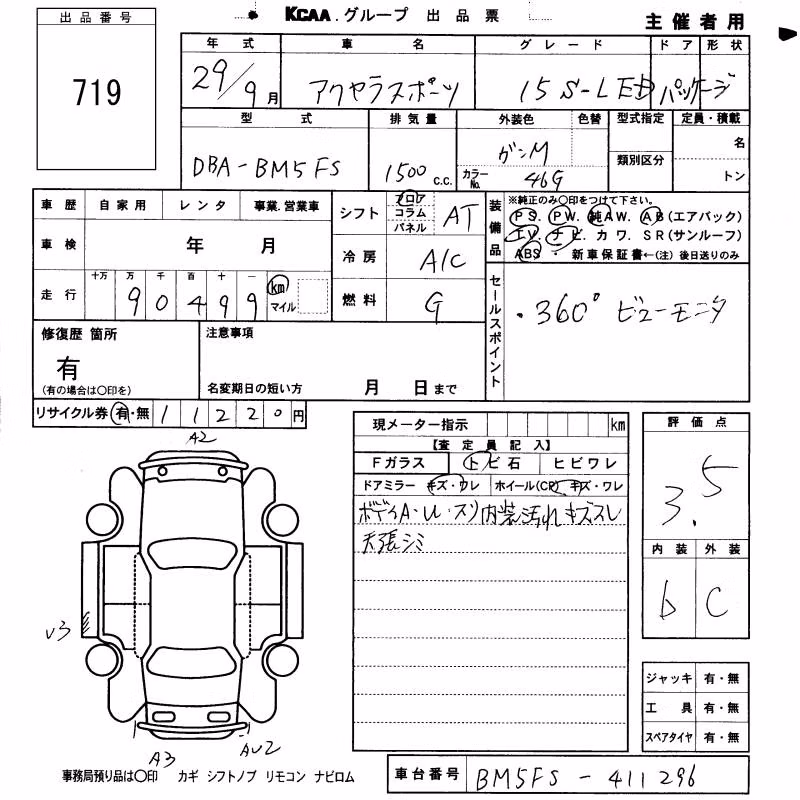 出品番号
719
KCAA.グループ 出品票
主催者用
年式 車名 グレード ドア 形状
29/9月 アクセラスポーツ 15S-LEDパッケージ
型式 排気量 外装色 色替 型式指定 定員・積載
DBA-BM5FS 1500 c.c. ガンM 名
カラーNo. 46G 類別区分 トン
車歴 自家用 レンタ 事業.営業車
車検 年 月
走行 十万 万 千 百 十 一 km マイル
90499
シフト フロア コラム パネル AT
冷房 A/C
燃料 G
装備品
※純正のみ〇印をつけて下さい。
PS. PW. 純AW. AB(エアバック)
TV. ナビ. カワ. SR(サンルーフ)
ABS ・ 新車保証書←(注) 後日送りのみ
セールスポイント
・360°ビューモニタ
修復歴 箇所
有
(有の場合は〇印を)
注意事項
名変期日の短い方 月 日まで
リサイクル券 有・無 11220円
A2
V3
A3 AU2
現メーター指示 km
【査定員記入】
Fガラス トビ石 ヒビワレ
ドアミラー キズ・ワレ ホイール(CP) キズ・ワレ
ボディA・U・スリ内装汚れキズスレ
天張シミ
評価点
3.5
内装 外装
b C
ジャッキ 有・無
工具 有・無
スペアタイヤ 有・無
事務局預り品は〇印 カギ シフトノブ リモコン ナビロム
車台番号 BM5FS-411296